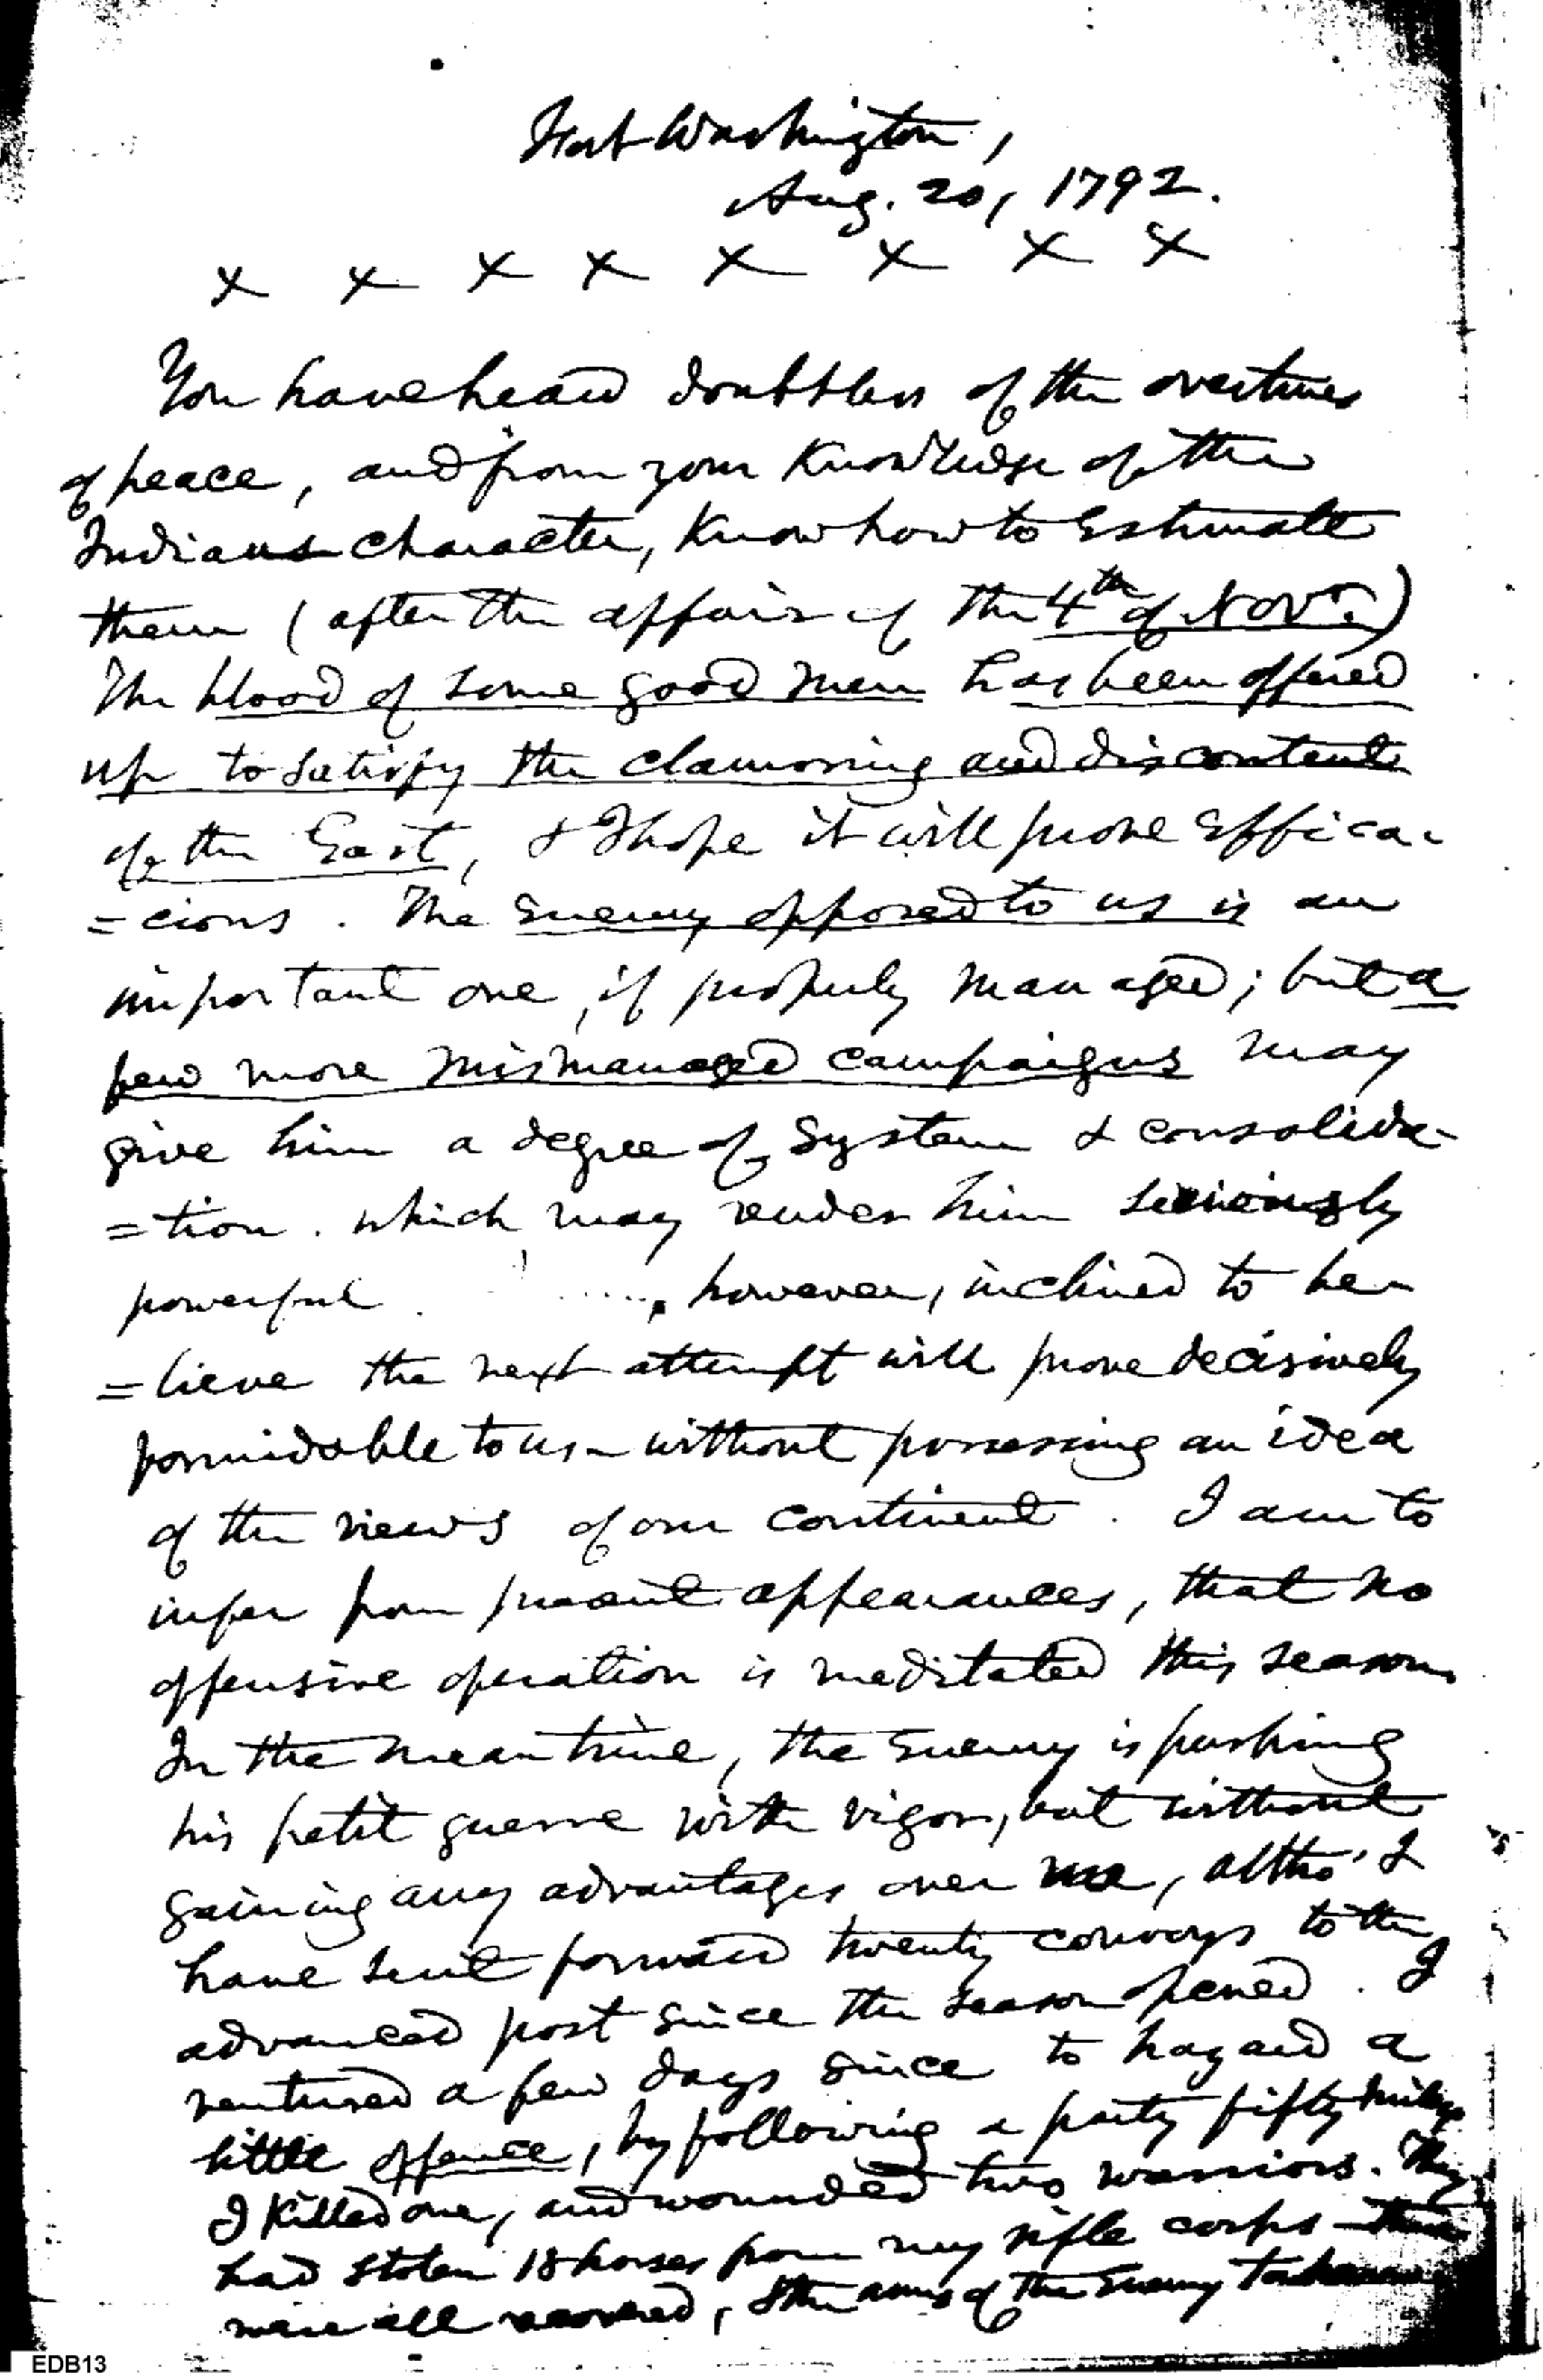 Fort Washington,
Aug. 20, 1792.
x x x x x x x x
You have heard doubtless of the overtures
of peace, and from your Knowledge of the
Indians character, Know how to Estimate
them (after the affair of the 4th of Novr.)
The blood of some good men has been offered
up to satisfy the clamoring and discontent
of the East, & I hope it will prove Effica-
=cious. The Enemy opposed to us is an
important one, if properly managed; but a
few more mismanaged campaigns may
give him a degree of System & consolida-
=tion. which may render him seriously
powerful. ....., however, inclined to be-
=lieve the next attempt will prove decisively
formidable to us - without possessing an idea
of the views of our continent. I am to
infer from present appearances, that no
offensive operation is meditated this season.
In the meantime, the Enemy is pushing
his petit guerre with vigor, but without
gaining any advantages over me, altho' I
have sent forward twenty convoys to the
advanced post since the season opened. I
ventured a few days since to hazard a
little offence, by following a party fifty miles
I Killed one, and wounded two warriors. They
had stolen 18 horses from my rifle corps - these
were all recovered, & the arms of the Enemy taken
EDB13